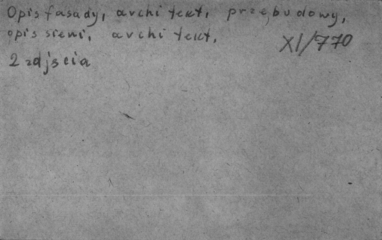 Opis fasady, architekt, przebudowy,
opis sieni, architekt.
XI/770
2 zdjęcia